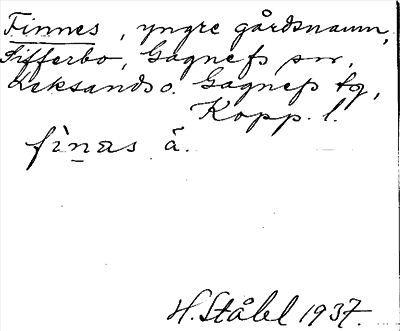 Finnes, yngre gårdsnamn,
Sifferbo, Gagnefs sn,
Leksands o. Gagnefs tg,
Kopp. l.
fìnas å.
H. Ståhl 1937.